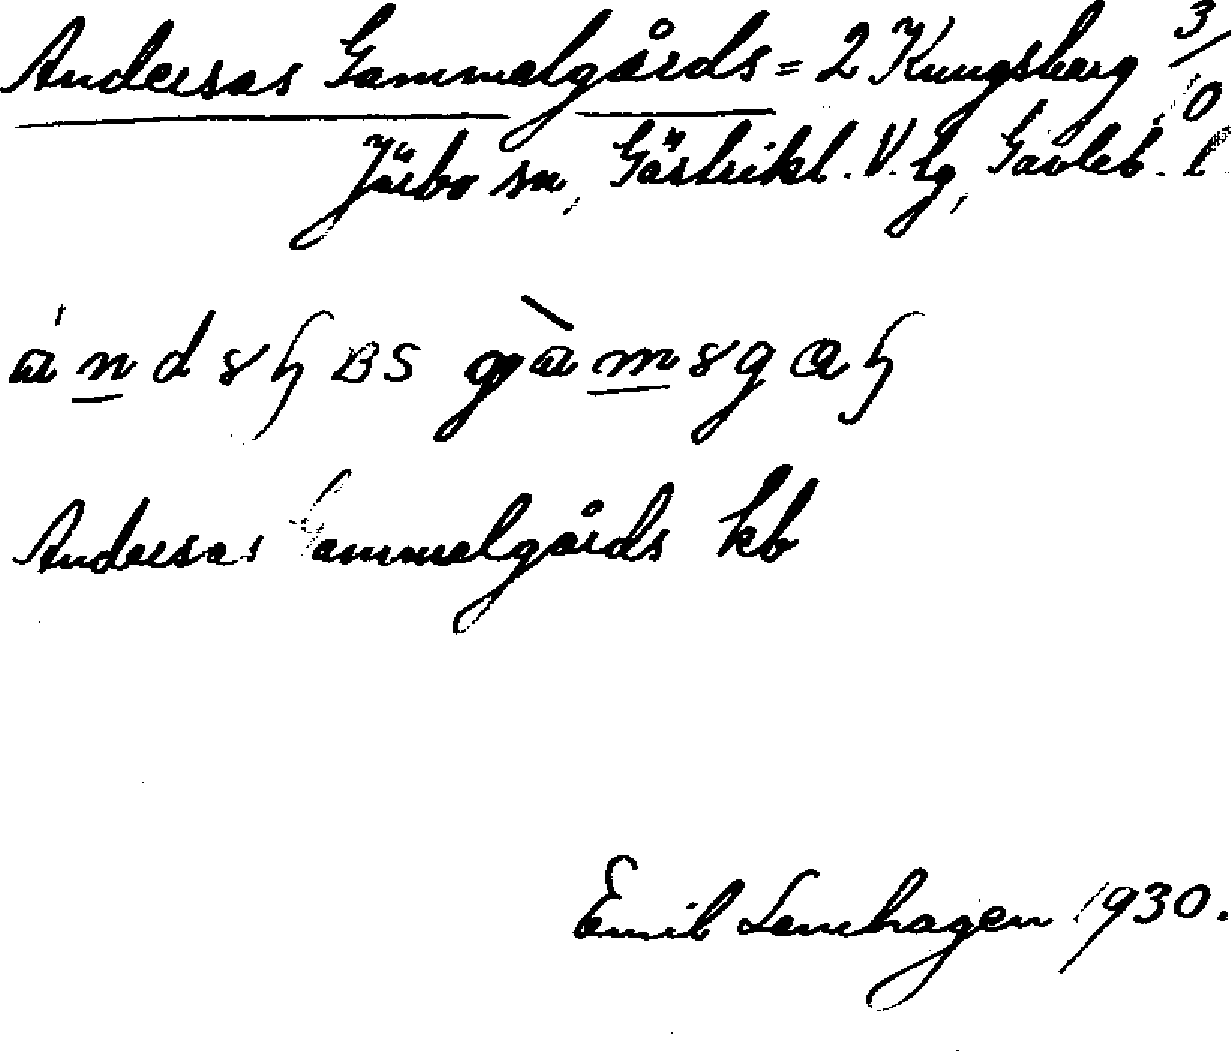 Andersas Gammelgårds = 2 Kungsberg 3/10
Järbo sn, Gästrikl. V. tg, Gävleb. l
Andersas Gammelgårds kb
Emil Lenhagen 1930.